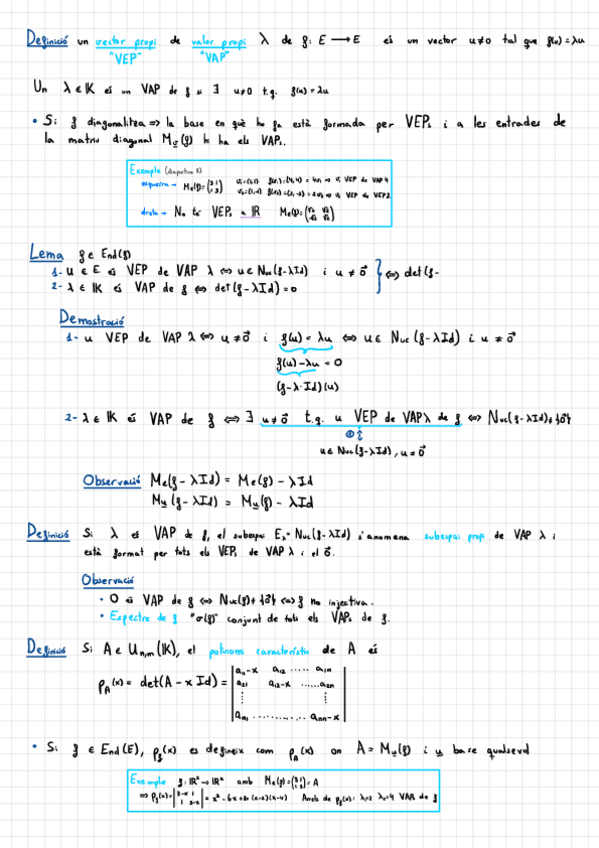 Definició un vector propi de valor propi λ de f: E → E és un vector u≠0 tal que f(u)=λu
"VEP" "VAP"
Un λ ∈ IK és un VAP de f si ∃ u≠0 t.q. f(u)=λu
• Si f diagonalitza => la base en què ho fa està formada per VEPs i a les entrades de
la matriu diagonal Mu(f) hi ha els VAPs.
Exemple (diapositiva
esquerra → Me(f)=(3 1; 1 3) VEP de VAP 4
VEP de VAP 2
dreta → No té VEPs a IR Me(f)=
Lema f ∈ End(f)
1- u ∈ E és VEP de VAP λ ⇔ u ∈ Nuc(f-λId) i u ≠ 0⃗ } ⇔ det(f-
2- λ ∈ IK és VAP de f ⇔ det(f-λId)=0
Demostració
1- u VEP de VAP λ ⇔ u ≠ 0⃗ i f(u) = λu ⇔ u ∈ Nuc(f-λId) i u ≠ 0⃗
f(u)-λu = 0
(f-λ·Id)(u)
2- λ ∈ IK és VAP de f ⇔ ∃ u≠0⃗ t.q. u VEP de VAP λ de f ⇔ Nuc(f-λId)≠{0⃗}
u ∈ Nuc(f-λId), u ≠ 0⃗
Observació Me(f-λId) = Me(f) - λId
Mu(f-λId) = Mu(f) - λId
Definició Si λ és VAP de f, el subespai Eλ= Nuc(f-λId) s'anomena subespai propi de VAP λ i
està format per tots els VEPs de VAP λ i el 0⃗.
Observació
• 0 és VAP de f ⇔ Nuc(f)≠{0⃗} ⇔ f no injectiva.
• Espectre de f "σ(f)" conjunt de tots els VAPs de f.
Definició Si A ∈ Mn,n(IK), el polinomi característic de A és
pA(x) = det(A-x Id) = | a11-x a12 ..... a1n
a21 a22-x ......a2n
⋮ ⋮
an1 .............. ann-x |
• Si f ∈ End(E), pf(x) es defineix com pA(x) on A = Mu(f) i u base qualsevol
Exemple f: IR² → IR² amb Me(f)=(3 1; 1 3) = A
=> pf(x)=|3-x 1; 1 3-x| = x²-6x+8=(x-2)(x-4) Arrels de pf(x): λ=2 λ=4 VAPs de f